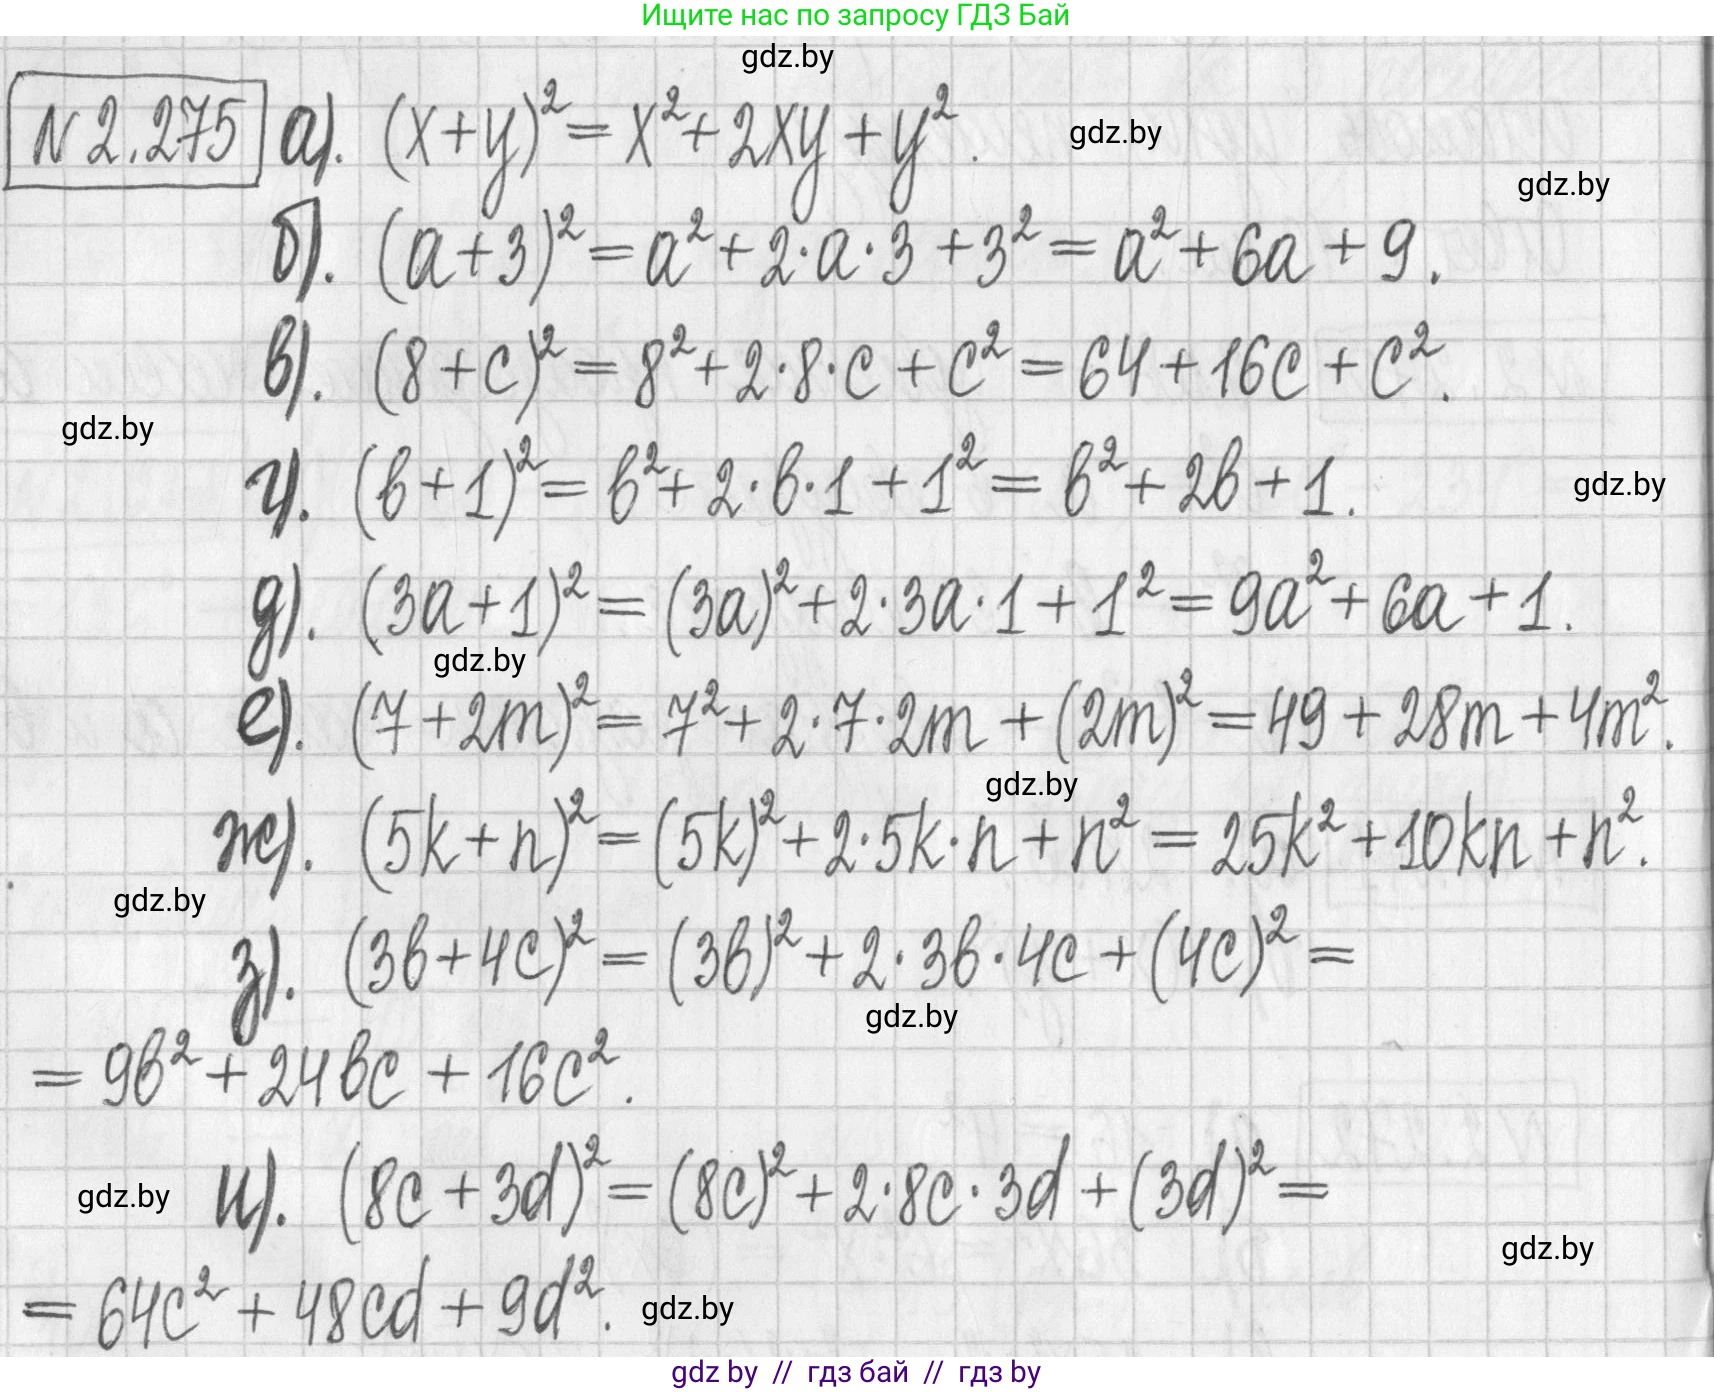 Ищите нас по запросу ГДЗ Бай
gdz.by
N 2.275 а). (x+y)² = x² + 2xy + y². gdz.by
gdz.by
б). (a+3)² = a² + 2·a·3 + 3² = a² + 6a + 9.
в). (8+c)² = 8² + 2·8·c + c² = 64 + 16c + c².
gdz.by
г). (b+1)² = b² + 2·b·1 + 1² = b² + 2b + 1.
gdz.by
д). (3a+1)² = (3a)² + 2·3a·1 + 1² = 9a² + 6a + 1.
gdz.by
е). (7+2m)² = 7² + 2·7·2m + (2m)² = 49 + 28m + 4m².
gdz.by
ж). (5k+n)² = (5k)² + 2·5k·n + n² = 25k² + 10kn + n².
gdz.by
з). (3b+4c)² = (3b)² + 2·3b·4c + (4c)² =
gdz.by
= 9b² + 24bc + 16c².
gdz.by и). (8c+3d)² = (8c)² + 2·8c·3d + (3d)² =
gdz.by
= 64c² + 48cd + 9d². gdz.by
gdz by // гдз бай // гдз by